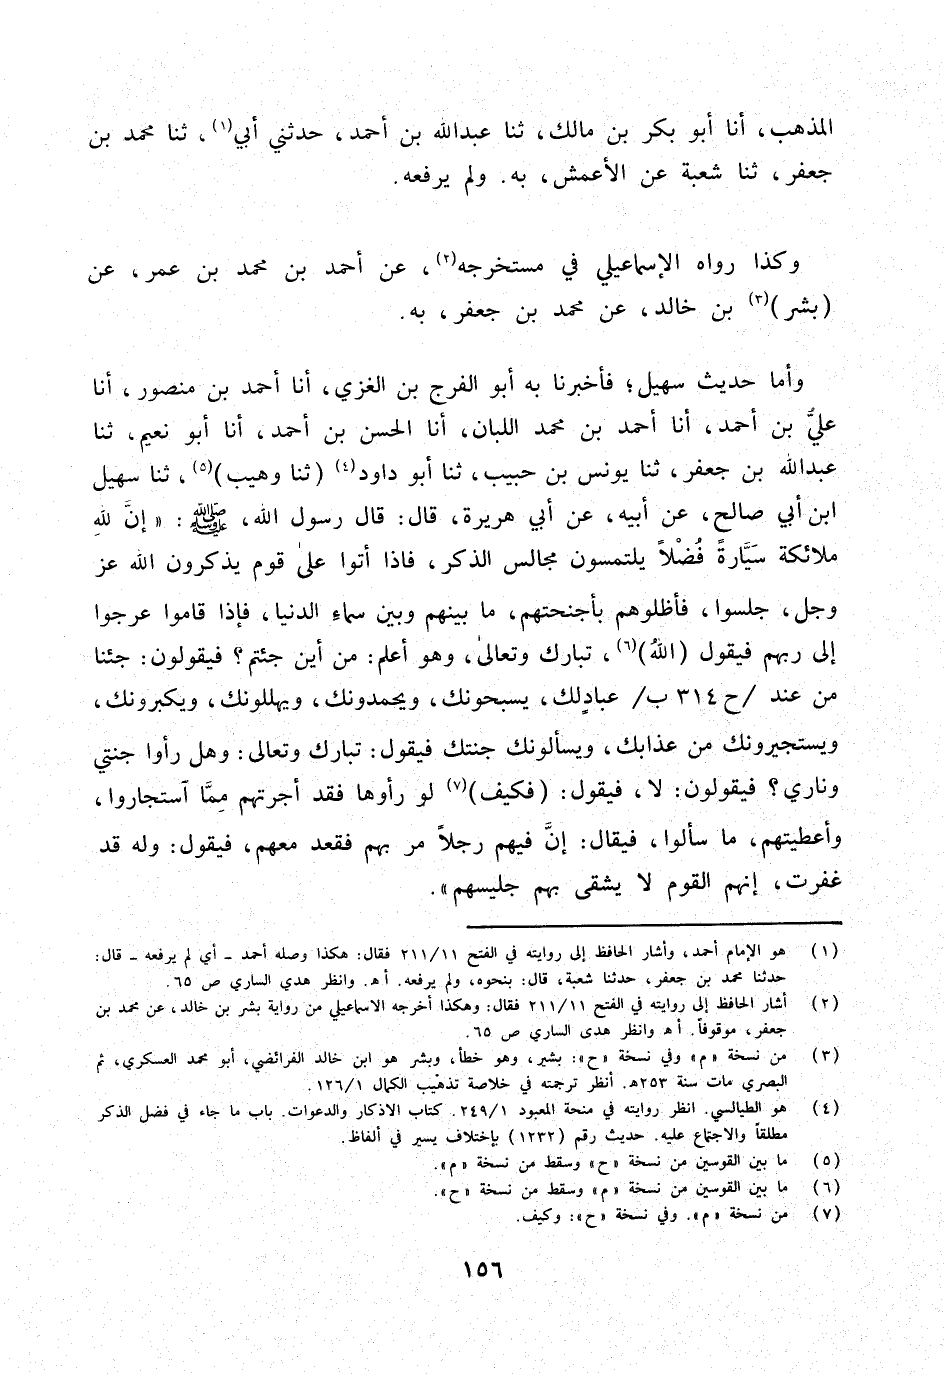 المذهب، أنا أبو بكر بن مالك، ثنا عبدالله بن أحمد، حدثني أبي(١)، ثنا محمد بن
جعفر، ثنا شعبة عن الأعمش، به. ولم يرفعه.
وكذا رواه الإسماعيلي في مستخرجه(٢)، عن أحمد بن محمد بن عمر، عن
(بشر)(٣) بن خالد، عن محمد بن جعفر، به.
وأما حديث سهيل؛ فأخبرنا به أبو الفرج بن الغزي، أنا أحمد بن منصور، أنا
عليُّ بن أحمد، أنا أحمد بن محمد اللبان، أنا الحسن بن أحمد، أنا أبو نعيم، ثنا
عبدالله بن جعفر، ثنا يونس بن حبيب، ثنا أبو داود(٤) (ثنا وهيب)(٥)، ثنا سهيل
ابن أبي صالح، عن أبيه، عن أبي هريرة، قال: قال رسول الله، ﷺ: «إنَّ للهِ
ملائكة سَيَّارةً فُضْلاً يلتمسون مجالس الذكر، فاذا أتوا علىٰ قوم يذكرون الله عز
وجل، جلسوا، فأظلوهم بأجنحتهم، ما بينهم وبين سماءِ الدنيا، فإذا قاموا عرجوا
إلى ربهم فيقول (اللهُ)(٦)، تبارك وتعالىٰ، وهو أعلم: من أين جئتم؟ فيقولون: جئنا
من عند /ح ٣١٤ ب/ عبادٍلك، يسبحونك، ويحمدونك، ويهللونك، ويكبرونك،
ويستجيرونك من عذابك، ويسألونك جنتك فيقول: تبارك وتعالى: وهل رأوا جنتي
وناري؟ فيقولون: لا، فيقول: (فكيف)(٧) لو رأوها فقد أجرتهم مِمَّا آستجاروا،
وأعطيتهم، ما سألوا، فيقال: إنَّ فيهم رجلاً مر بهم فقعد معهم، فيقول: وله قد
غفرت، إنهم القوم لا يشقى بهم جليسهم».
(١) هو الإمام أحمد، وأشار الحافظ إلى روايته في الفتح ٢١١/١١ فقال: هكذا وصله أحمد - أي لم يرفعه - قال:
حدثنا محمد بن جعفر، حدثنا شعبة، قال: بنحوه، ولم يرفعه. أ هـ. وانظر هدي الساري ص ٦٥.
(٢) أشار الحافظ إلى روايته في الفتح ٢١١/١١ فقال: وهكذا أخرجه الاسماعيلي من رواية بشر بن خالد، عن محمد بن
جعفر، موقوفاً. أ هـ وانظر هدى الساري ص ٦٥.
(٣) من نسخة «م» وفي نسخة «ح»: بشير، وهو خطأ، وبشر هو ابن خالد الفرائضي، أبو محمد العسكري، ثم
البصري مات سنة ٢٥٣هـ. أنظر ترجمته في خلاصة تذهيب الكمال ١٢٦/١.
(٤) هو الطيالسي. انظر روايته في منحة المعبود ٢٤٩/١. كتاب الاذكار والدعوات. باب ما جاء في فضل الذكر
مطلقاً والاجتماع عليه. حديث رقم (١٢٣٢) بإختلاف يسير في ألفاظ.
(٥) ما بين القوسين من نسخة «ح» وسقط من نسخة «م».
(٦) ما بين القوسين من نسخة «م» وسقط من نسخة «ح».
(٧) من نسخة «م». وفي نسخة «ح»: وكيف.
١٥٦